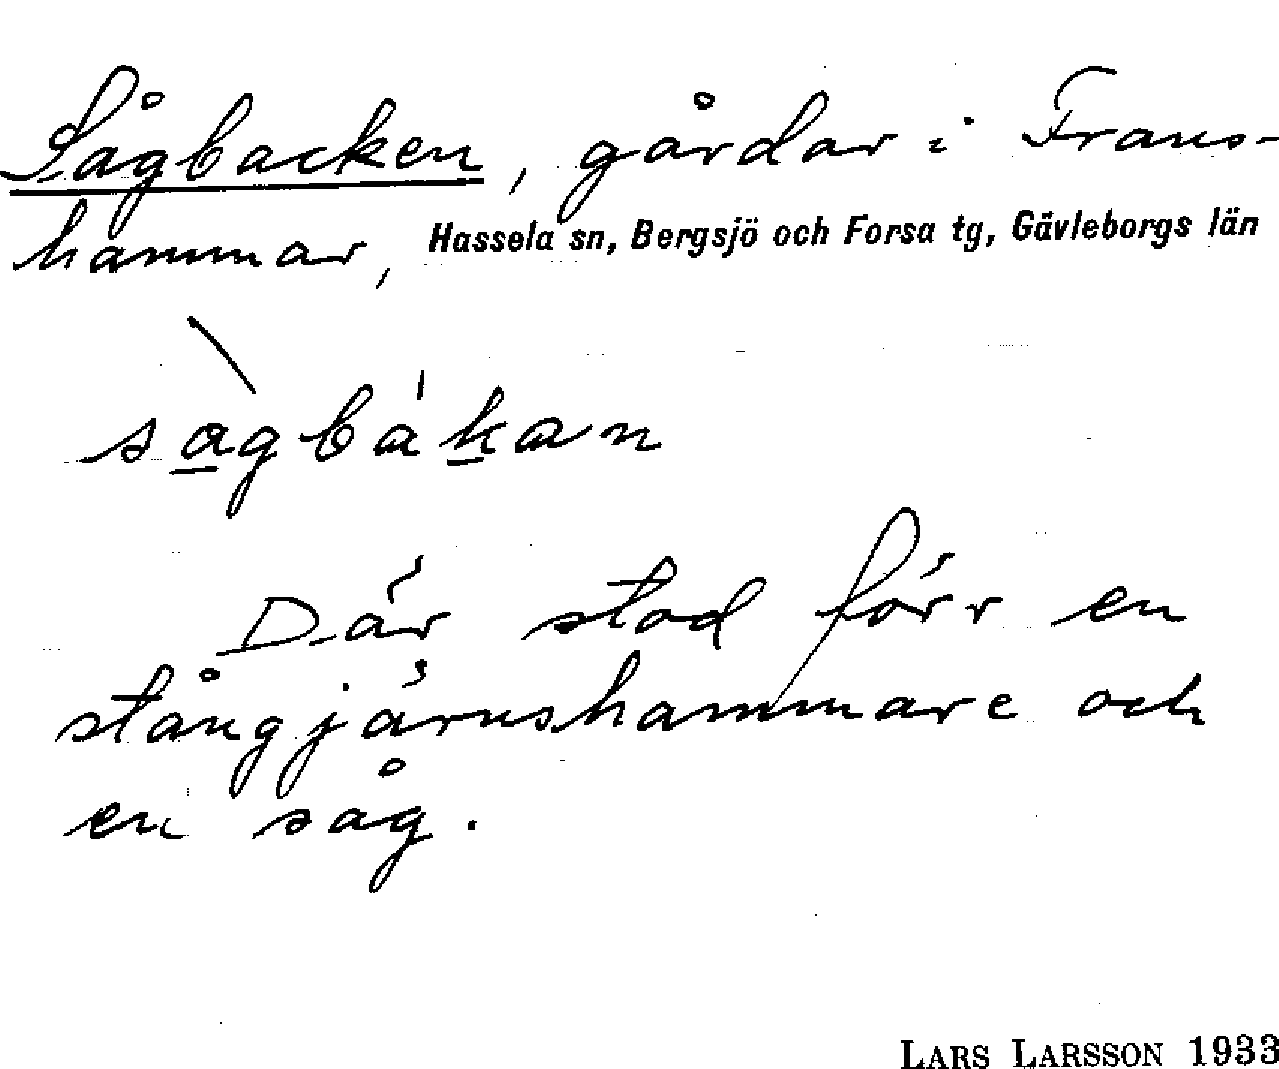 Sågbacken, gårdar i Frans-
hammar, Hassela sn, Bergsjö och Forsa tg, Gävleborgs län
sàgbákan
Där stod förr en
stångjärnshammare och
en såg.
LARS LARSSON 1933